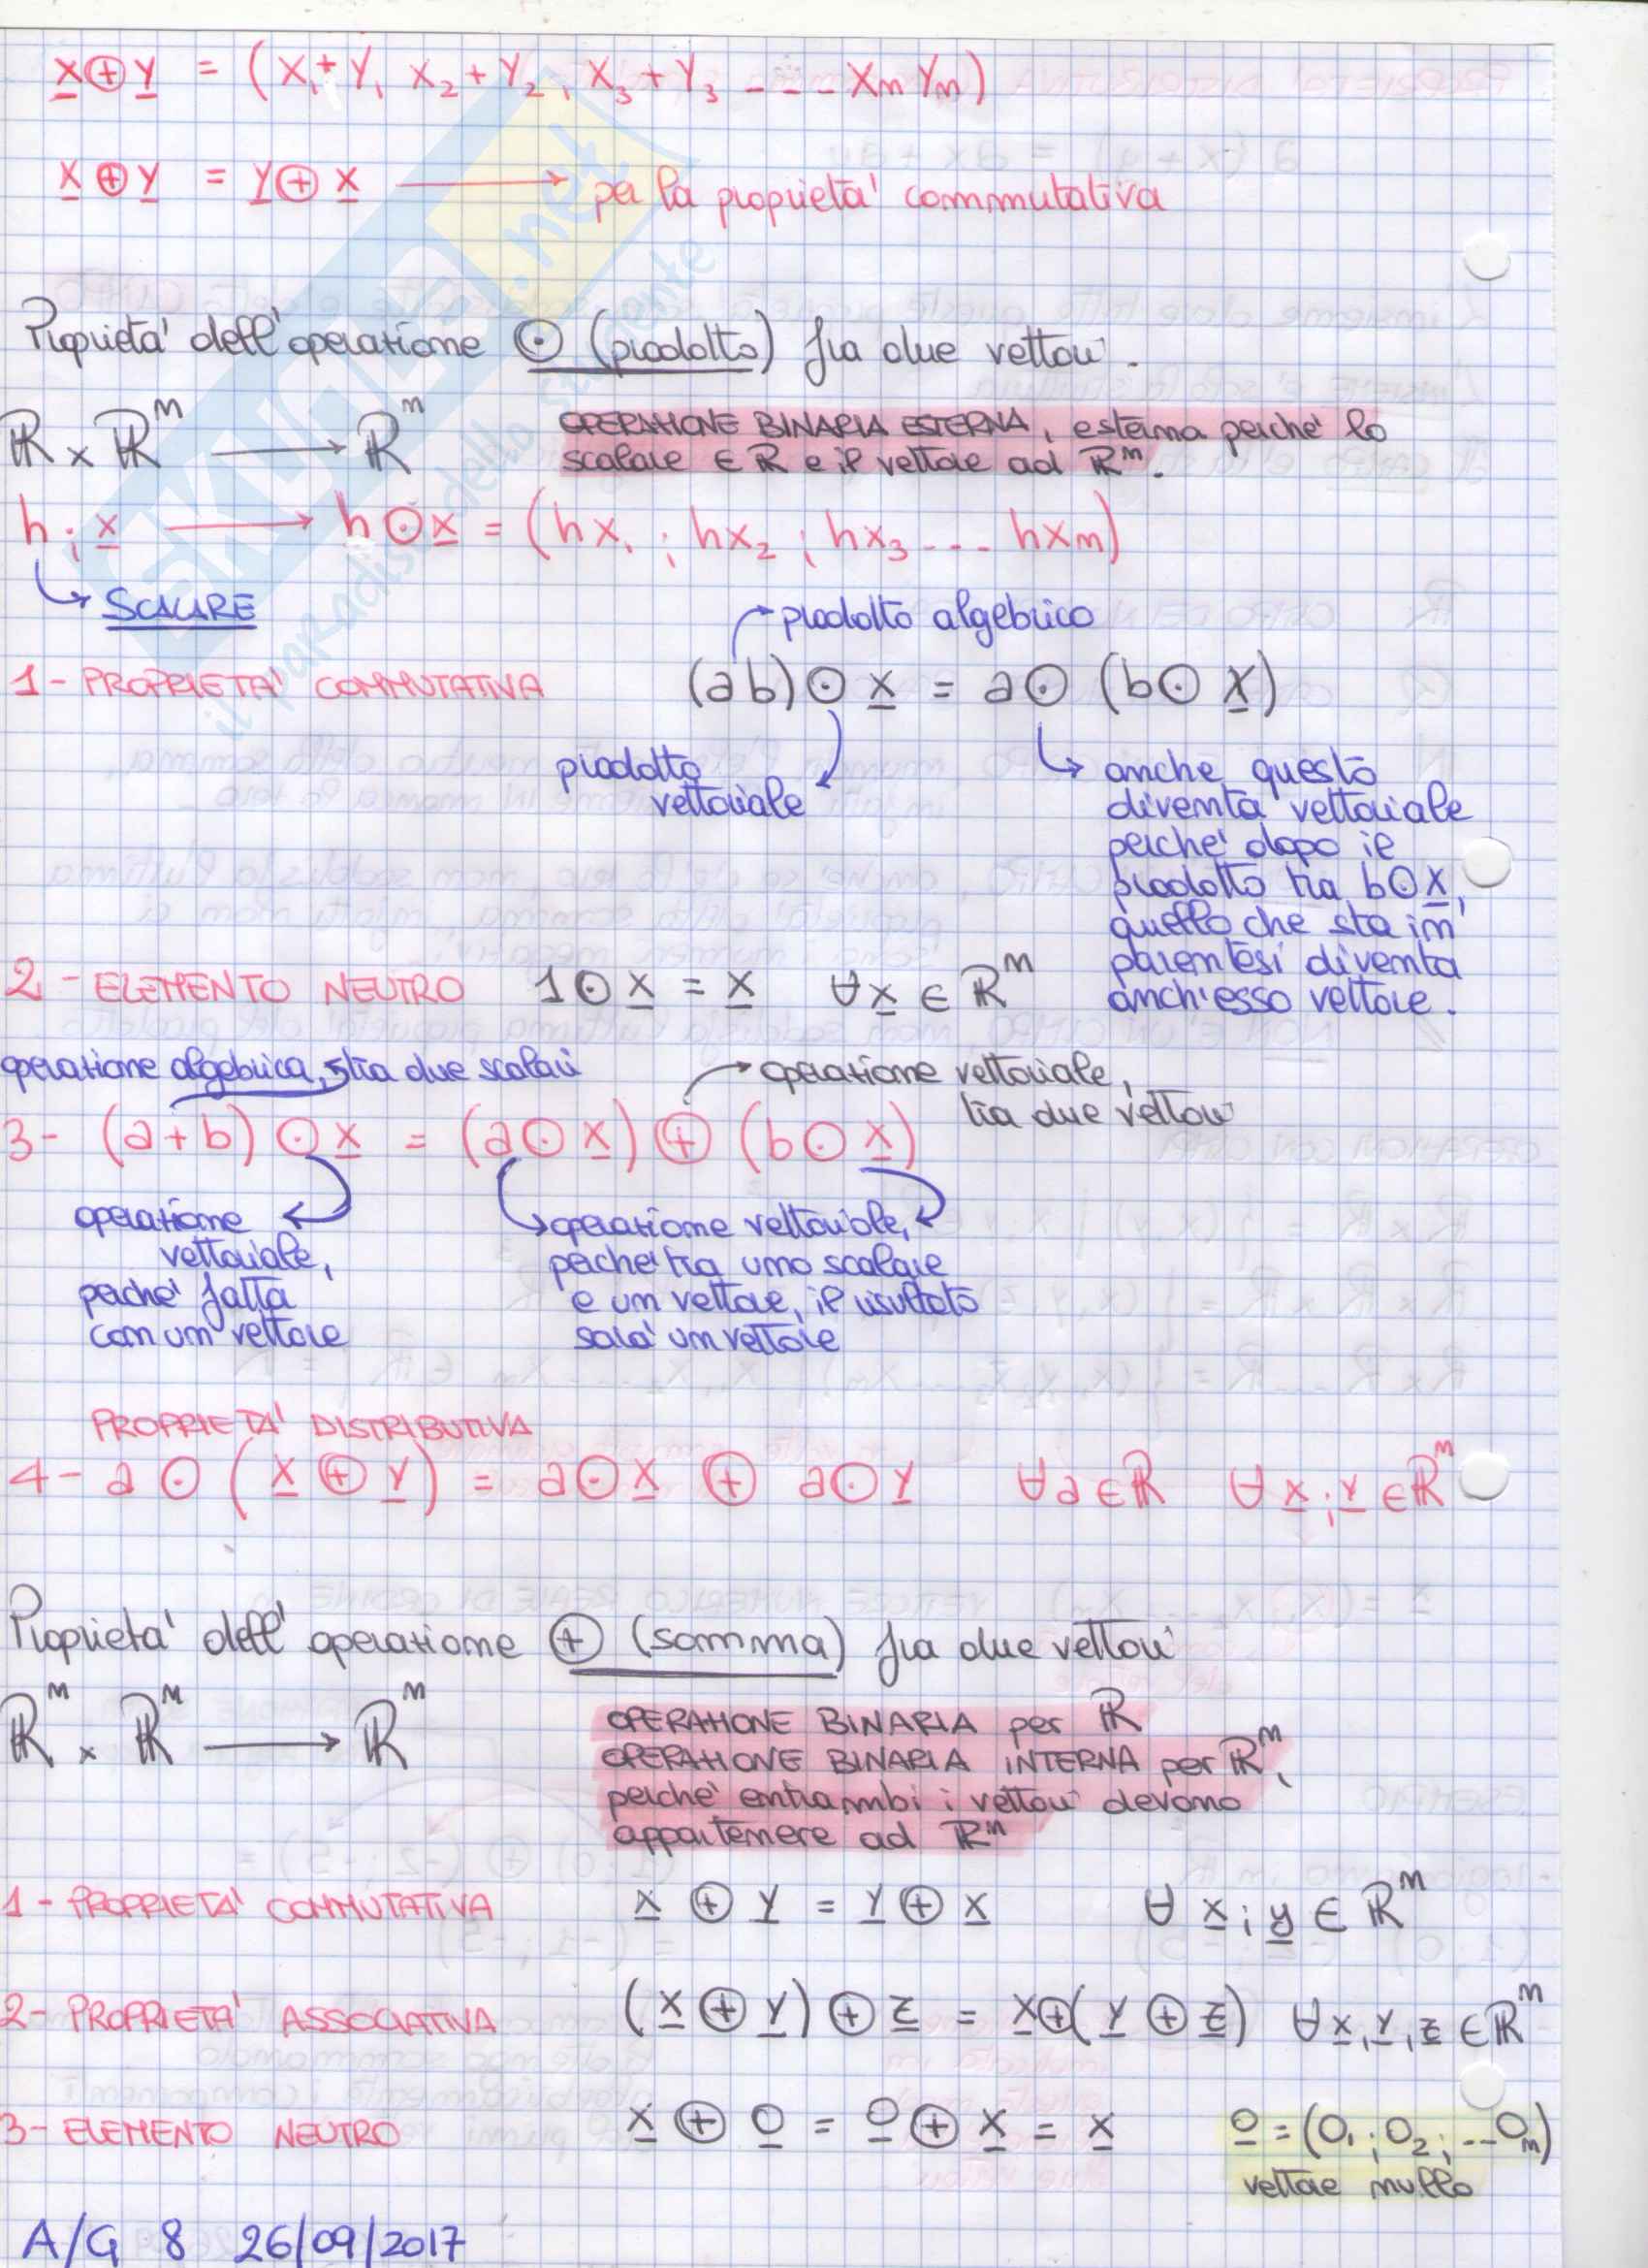 x⊕y = (x₁+y₁ x₂+y₂, x₃+y₃ --- xm ym)
x⊕y = y⊕x → per la proprietà commutativa
Proprietà dell'operazione ⊙ (prodotto) fra due vettori.
ℝ × ℝᵐ → ℝᵐ
OPERAZIONE BINARIA ESTERNA, esterna perchè lo
scalare ∈ ℝ e il vettore ad ℝᵐ.
h; x → h⊙x = (hx₁; hx₂; hx₃ --- hxm)
↳ SCALARE
prodotto algebrico
1- PROPRIETA' COMMUTATIVA (ab)⊙x = a⊙(b⊙x)
prodotto
vettoriale
anche questo
diventa vettoriale
perchè dopo il
prodotto tra b⊙x,
quello che sta in
parentesi diventa
anch'esso vettore.
2- ELEMENTO NEUTRO 1⊙x = x ∀x ∈ ℝᵐ
operazione algebrica, tra due scalari
operazione vettoriale,
tra due vettori
3- (a+b)⊙x = (a⊙x)⊕(b⊙x)
operazione
vettoriale,
perchè fatta
con un vettore
operazione vettoriale,
perchè tra uno scalare
e un vettore, il risultato
sarà un vettore
PROPRIETA' DISTRIBUTIVA
4- a⊙(x⊕y) = a⊙x ⊕ a⊙y ∀a∈ℝ ∀x;y∈ℝᵐ
Proprietà dell'operazione ⊕ (somma) fra due vettori
ℝᵐ × ℝᵐ → ℝᵐ
OPERAZIONE BINARIA per ℝ
OPERAZIONE BINARIA INTERNA per ℝᵐ,
perchè entrambi i vettori devono
appartenere ad ℝᵐ
1- PROPRIETA' COMMUTATIVA x⊕y = y⊕x ∀x;y∈ℝᵐ
2- PROPRIETA' ASSOCIATIVA (x⊕y)⊕z = x⊕(y⊕z) ∀x,y,z∈ℝᵐ
3- ELEMENTO NEUTRO x⊕0 = 0⊕x = x 0=(0₁;0₂;--0m)
vettore nullo
A/G 8 26/09/2017
SKUOLA.net
il paradiso dello studente